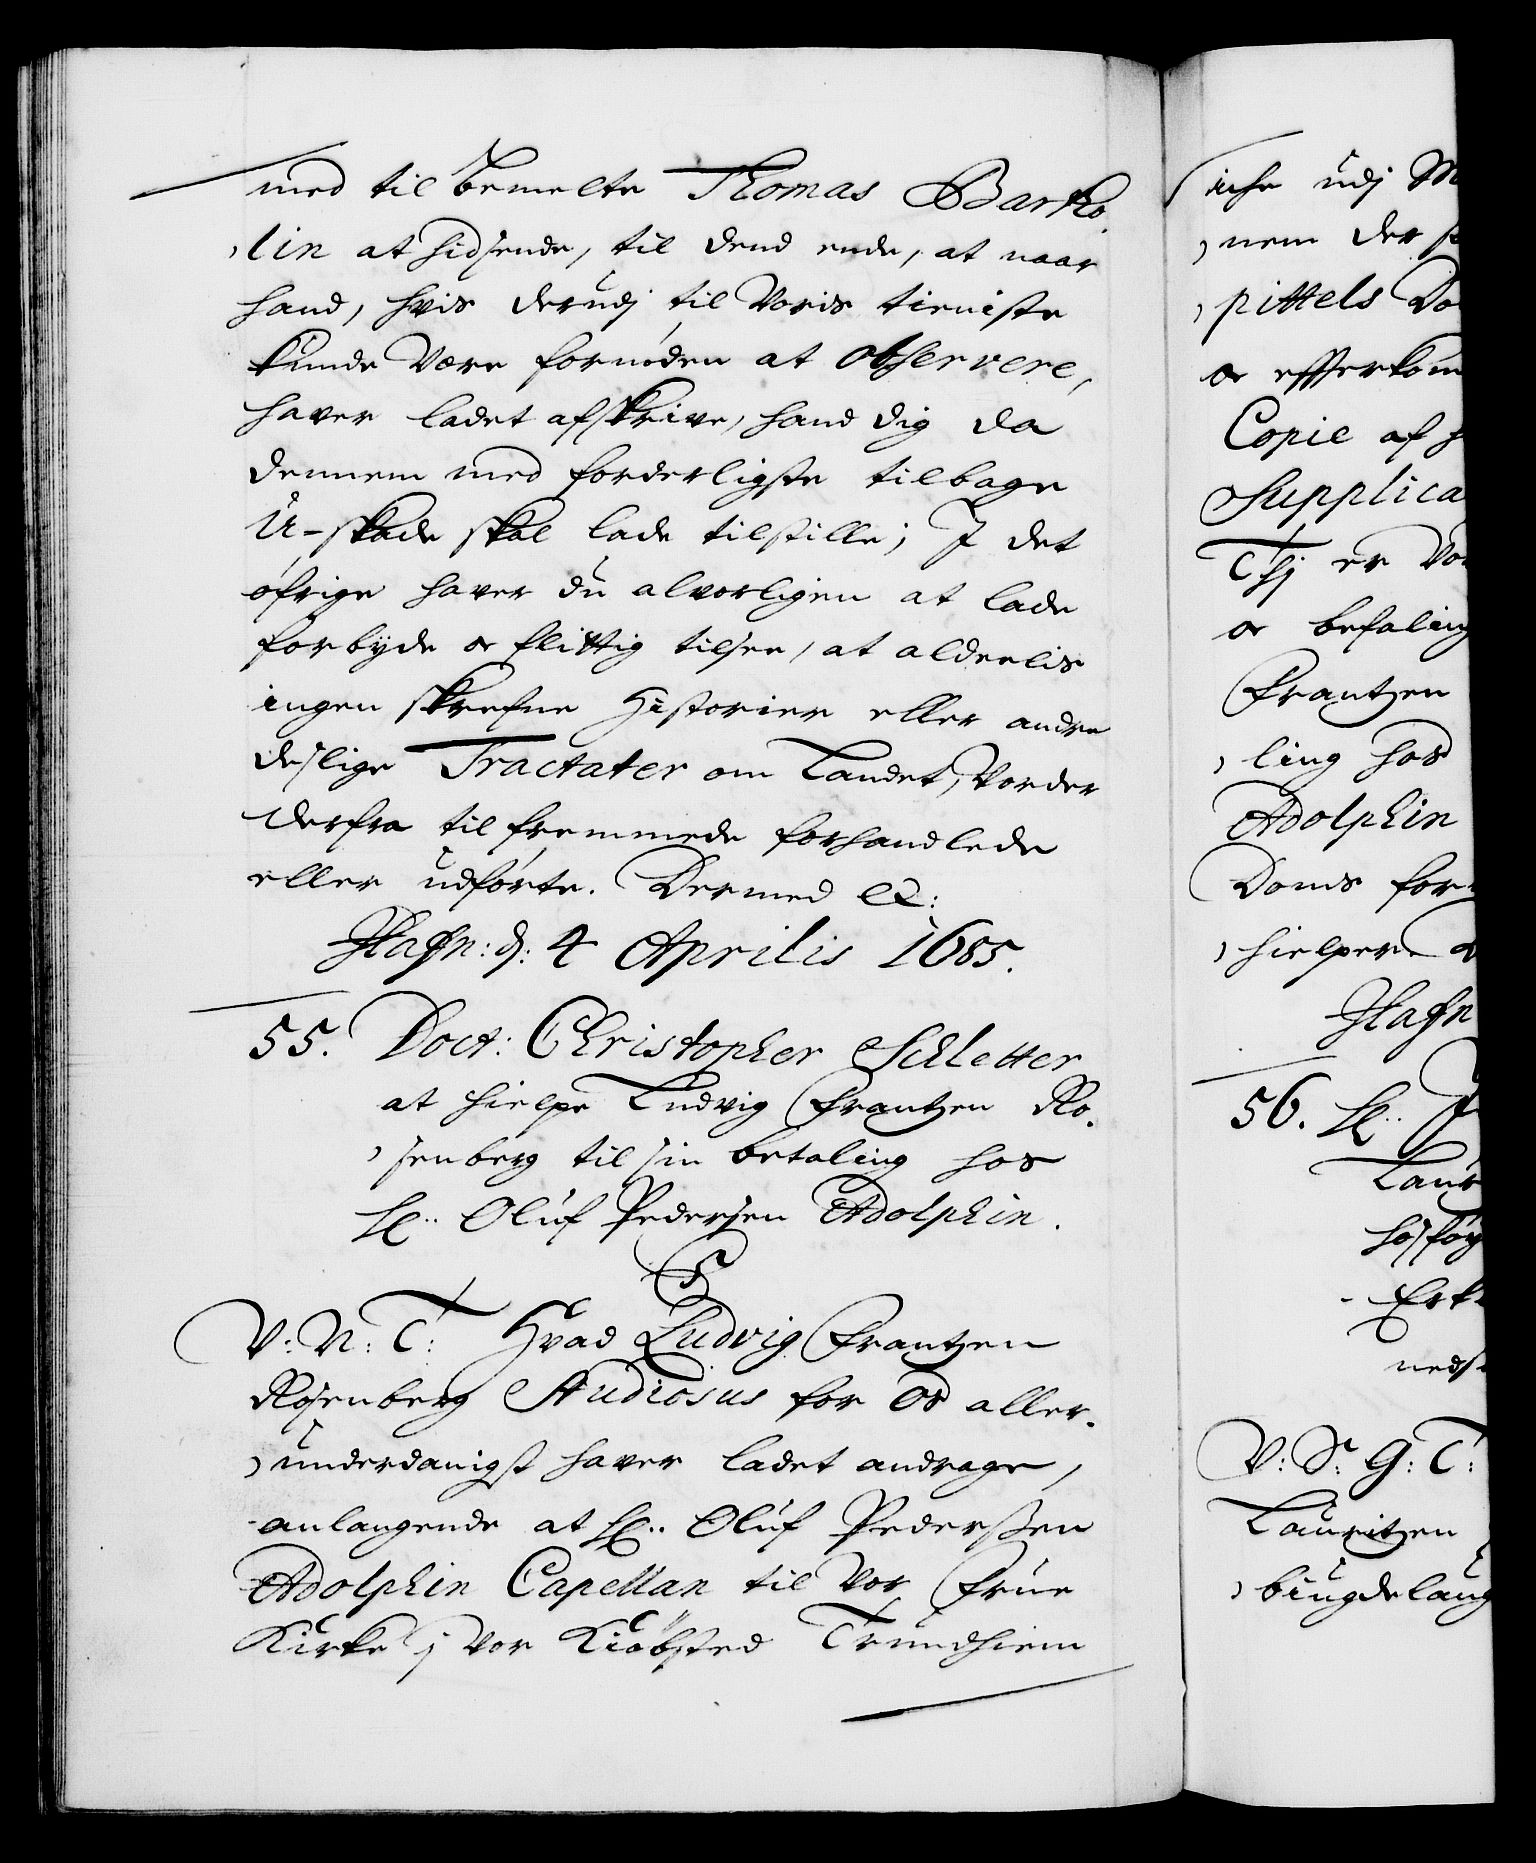 med til bemelte Thomas Bartho,
,lin at hidsende, til dend ende, at naar
hand, hvis derudj til Voris tieniste
kunde være fornöden at observere,
haver ladet afskrive, hand dig da
dennem med forderligste tilbage
U-skade skal lade tilstille; J det
öfrige haver du alvorligen at lade
forbyde og flittig tilsee, at aldeelis
ingen skrefne Historier eller andre
deslige Tractater om Landet, vorder
derfra til fremmede forhandlede
eller udförte. Dermed etc:
Hafn: d: 4 Aprilis 1685.
55. Doct: Christopher Schletter
at hielpe Ludvig Frantzen Ro,
,senberg til sin betaling hos
Hr: Oluf Pedersen Adolphin.
C5
V: N: T: Hvad Ludvig Frantzen
Rosenberg Studiosus for Os aller,
,underdanigst haver ladet andrage,
anlangende at Hr: Oluf Pederssen
Adolphin Capellan til Vor Frue
Kirke j vor Kiöbsted Trundhiem
udj
,nem der
,pittels Do
og efterkom
Copie af
Supplica
Thj er Vo
og befaling
Frantzen
,ling hos
Adolphin
Doms for
,hielper
Hafn
56. Hr: J
Laur
V: S: G: T:
Lauritzen
,biugdelaug